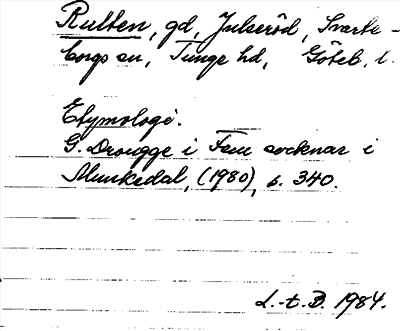 Rulten, gd, Julseröd, Svarte-
borgs sn, Tunge hd, Göteb. l.
Etymologi.
G. Drougge i Fem socknar i
Munkedal, (1980), s. 340.
L.-t. D. 1984.